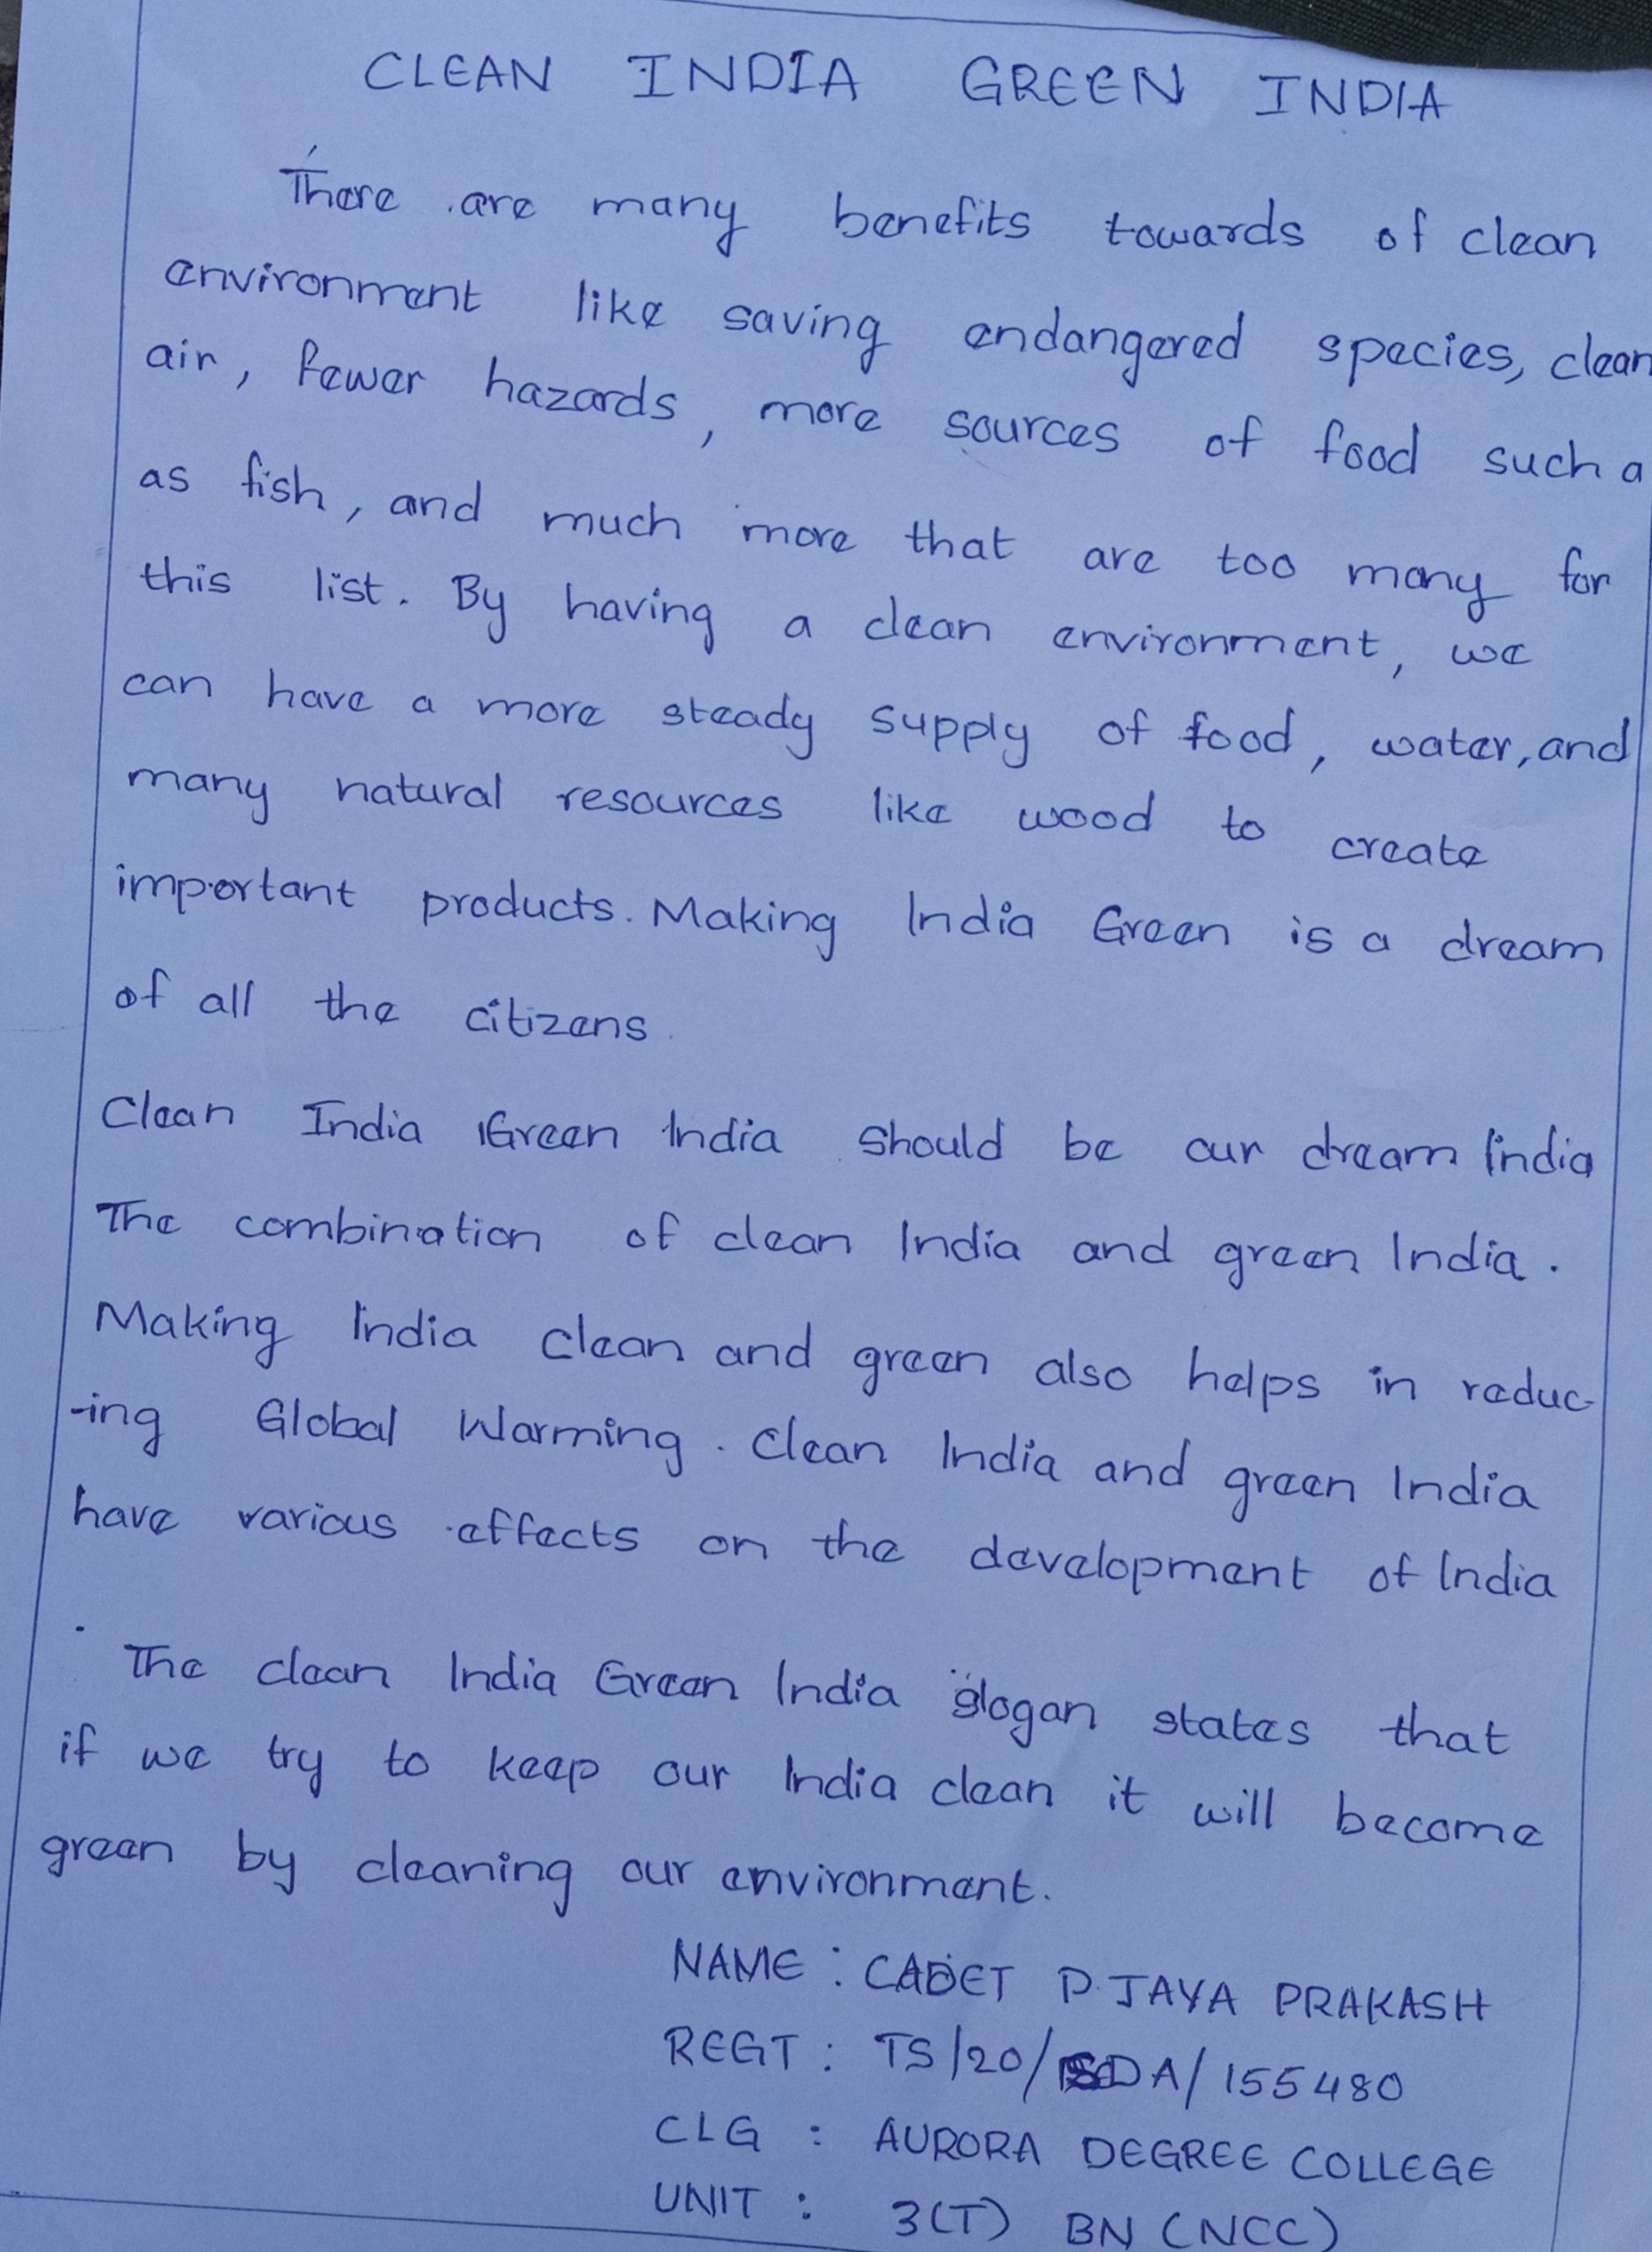 CLEAN INDIA GREEN INDIA
There are many benefits towards of clean
environment like saving endangered species, clean
air, fewer hazards, more sources of food such a
as fish, and much more that are too many for
this list. By having a clean environment, we
can have a more steady supply of food, water, and
many natural resources like wood to create
important products. Making India Green is a dream
of all the citizens.
Clean India Green India should be our dream India
The combination of clean India and green India.
Making India clean and green also helps in reduc-
-ing Global Warming. Clean India and green India
have various effects on the development of India
.
The clean India Green India slogan states that
if we try to keep our India clean it will become
green by cleaning our environment.
NAME : CADET P. JAYA PRAKASH
REGT : TS/20/SDA/155480
CLG : AURORA DEGREE COLLEGE
UNIT : 3(T) BN (NCC)